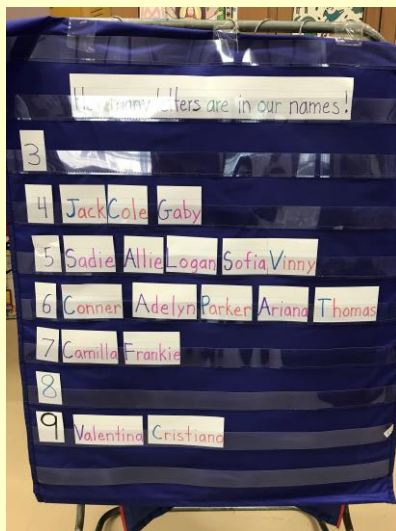 How many letters are in our names!
3
4 Jack Cole Gaby
5 Sadie Allie Logan Sofia Vinny
6 Conner Adelyn Parker Ariana Thomas
7 Camilla Frankie
8
9 Valentina Cristiano